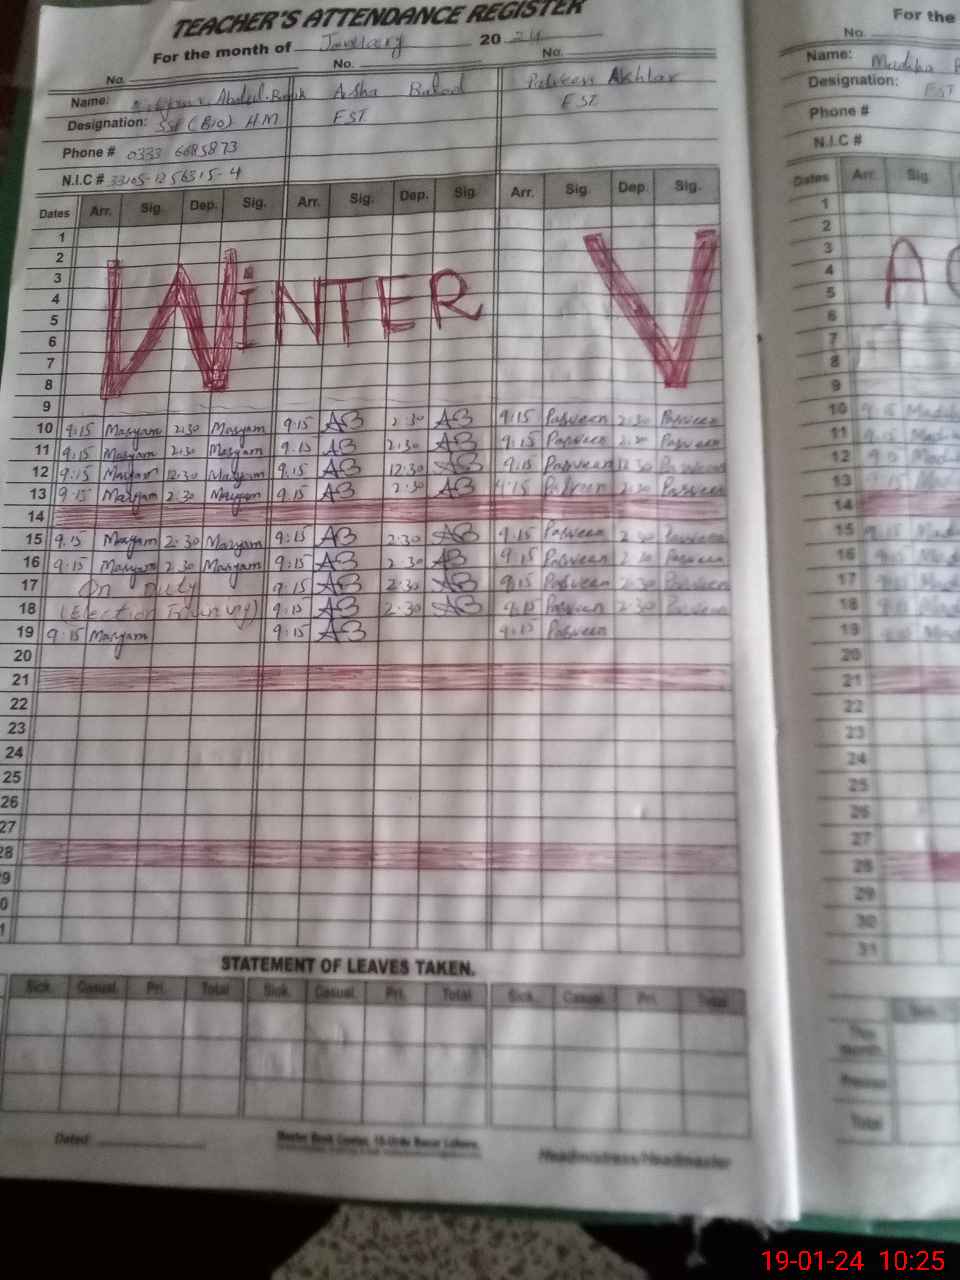 TEACHER'S ATTENDANCE REGISTER
For the month of January 2024
No. No. No.
Name: Abdul Asha Parveen Akhtar
Designation: SST (BIO) H.M EST EST
Phone # 0333 6685873
N.I.C #
Dates Arr. Sig. Dep. Sig. Arr. Sig. Dep. Sig. Arr. Sig. Dep. Sig.
1
2
3
4
5
6
7
8
WINTER V
9
10 9:15 Maryam 2:30 Maryam 9:15 AB 2:30 AB 9:15 Parveen 2:30 Parveen
11 9:15 Maryam 2:30 Maryam 9:15 AB 2:30 AB 9:15 Parveen 2:30 Parveen
12 9:15 Maryam 12:30 Maryam 9:15 AB 12:30 AB 9:15 Parveen 12:30 Parveen
13 9:15 Maryam 2:30 Maryam 9:15 AB 2:30 AB 9:15 Parveen 2:30 Parveen
14
15 9:15 Maryam 2:30 Maryam 9:15 AB 2:30 AB 9:15 Parveen 2:30 Parveen
16 9:15 Maryam 2:30 Maryam 9:15 AB 2:30 AB 9:15 Parveen 2:30 Parveen
17 On Duty 9:15 AB 2:30 AB 9:15 Parveen 2:30 Parveen
18 (Election Training) 9:15 AB 2:30 AB 9:15 Parveen 2:30 Parveen
19 9:15 Maryam 9:15 AB 9:15 Parveen
20
21
22
23
24
25
26
27
28
9
0
1
STATEMENT OF LEAVES TAKEN.
Sick. Casual. Pri. Total Sick. Casual. Pri. Total Sick. Casual. Pri. Total
Dated: Headmistress/Headmaster
For the
No.
Name: Madiha
Designation: EST
Phone #
N.I.C #
Dates Arr. Sig.
1
2
3
4
5
A
6
7
8
9
10 9:15
11 9:15
12
13
14
15 9:15
16
17
18
19
20
21
22
23
24
25
26
27
28
29
30
31
This Month
Previous
Total
19-01-24 10:25